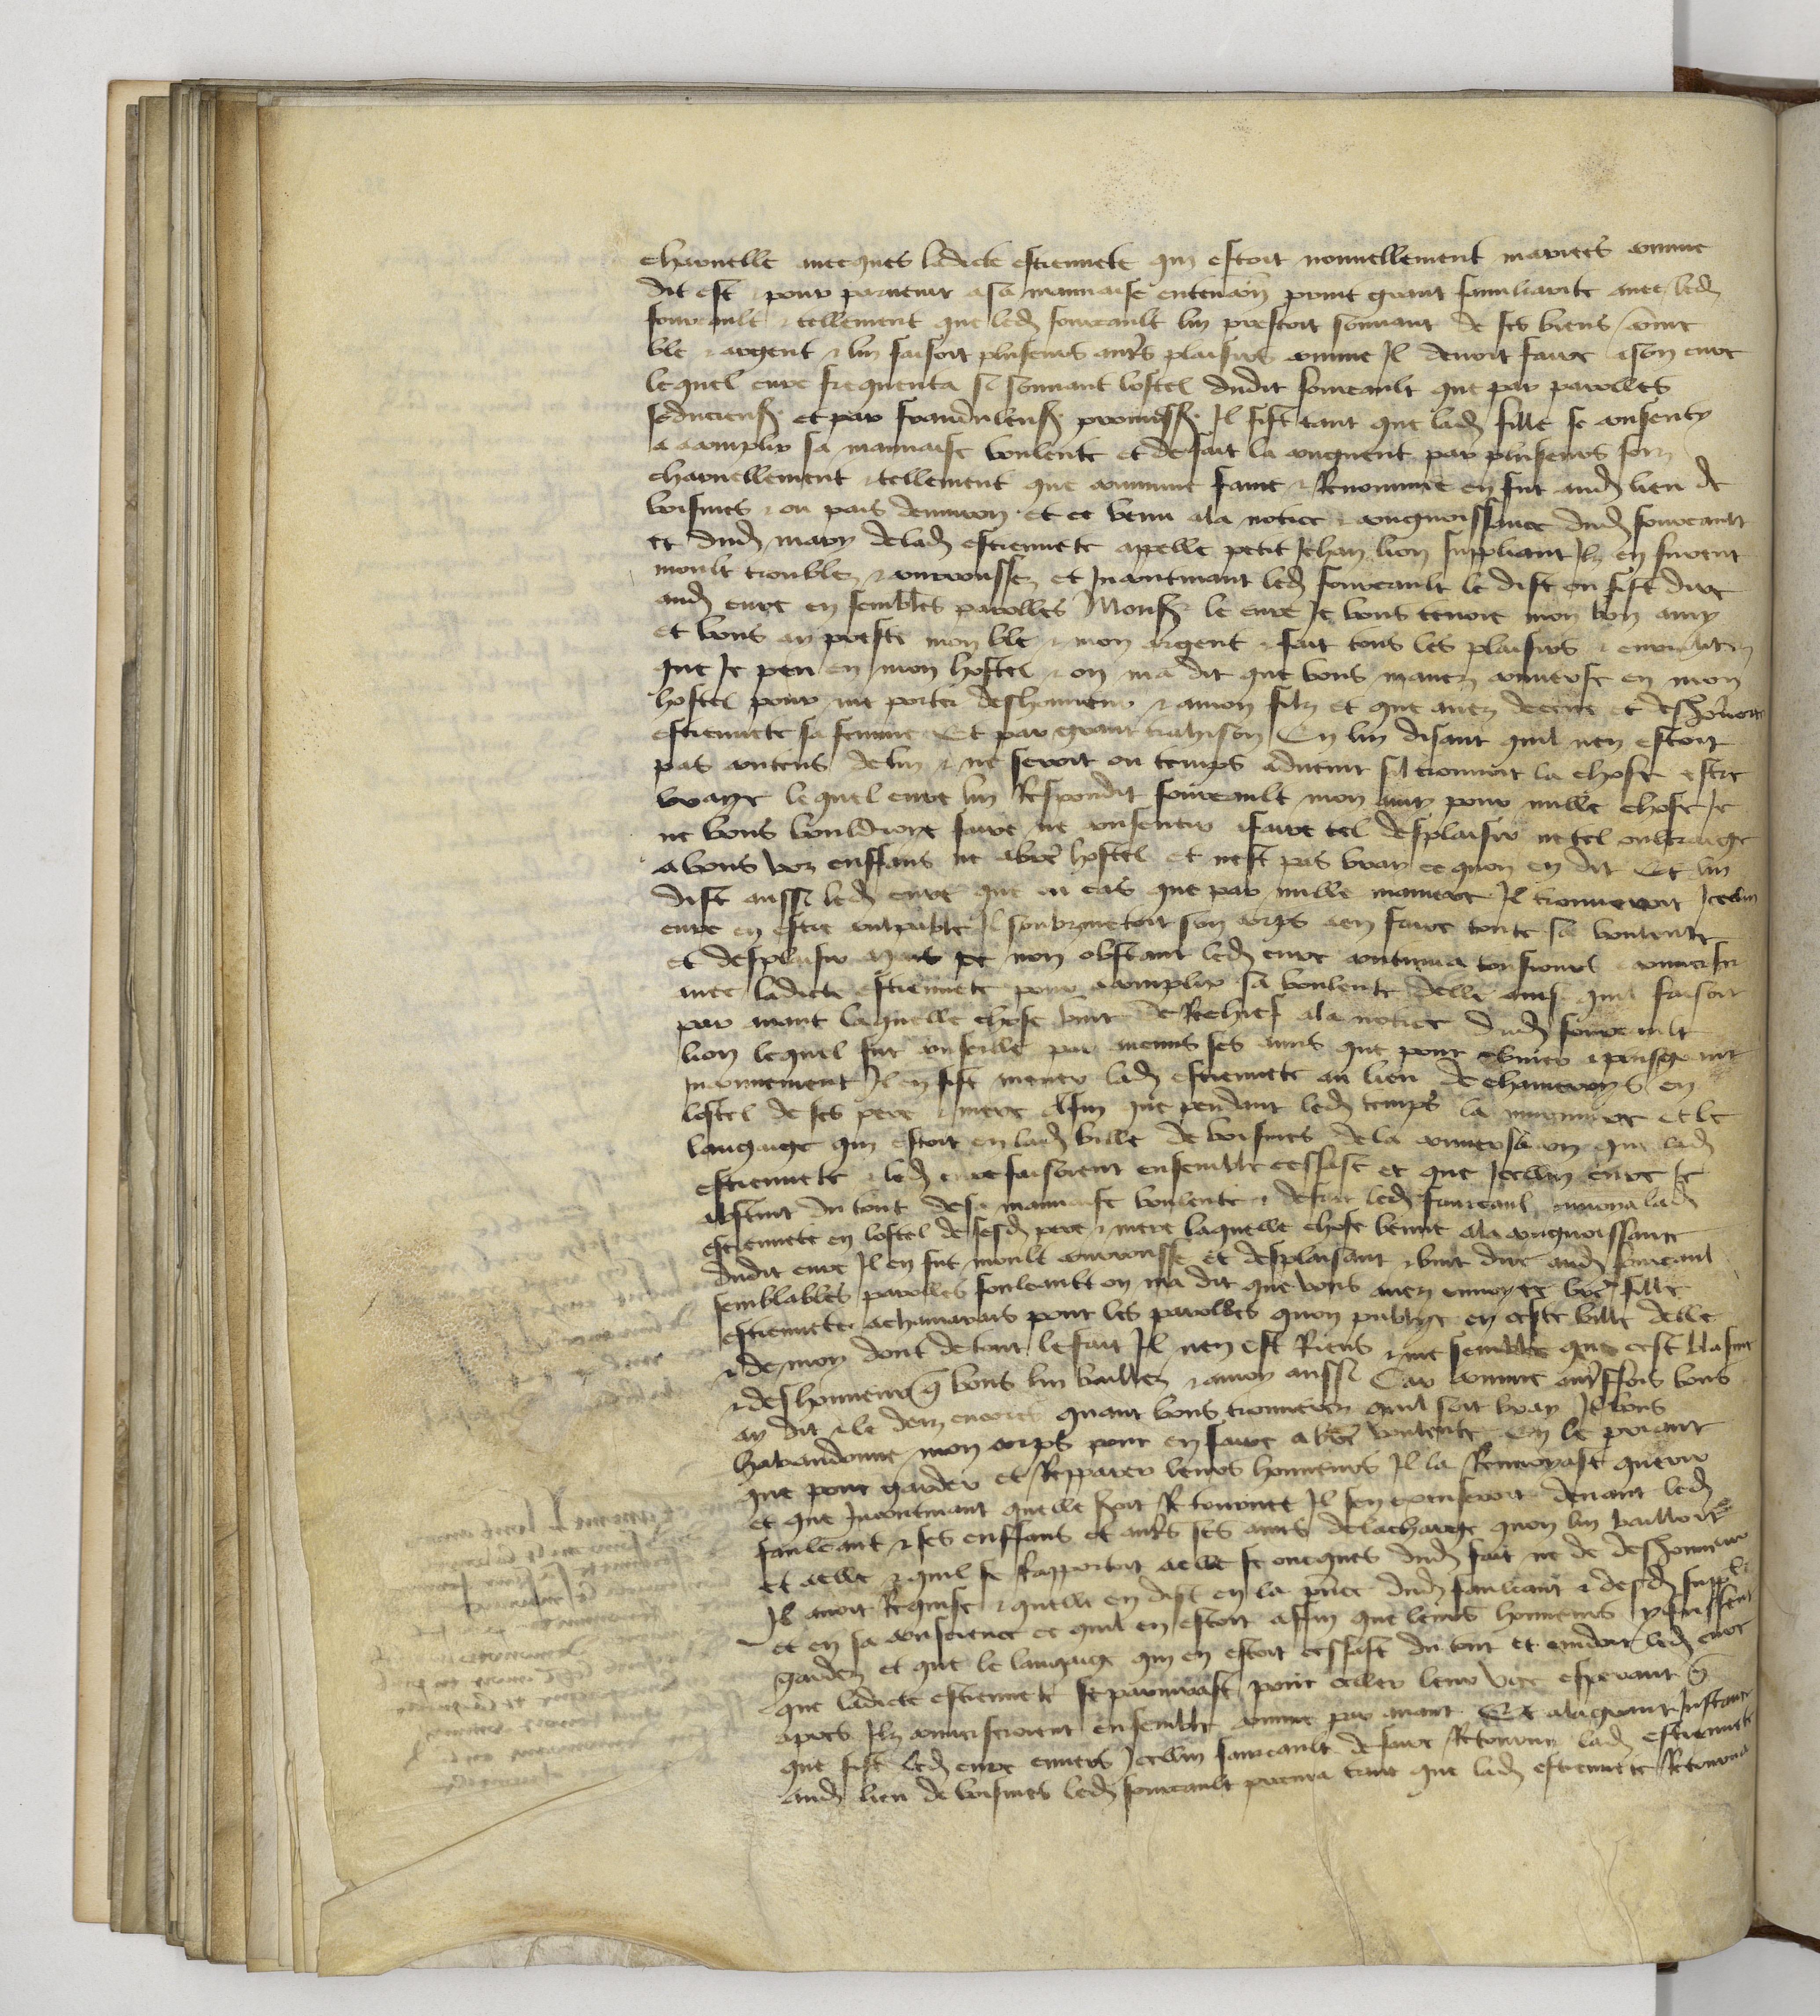 charnelle avecques ladicte estiennete qui estoit nouvellement mariees comme
dit est & pour parvenir a sa mauvaise entencion print grant familiarite avec led
foucault & tellement que led foucault luy prestoit souvant de ses biens comme
ble & argent & luy faisoit pluseurs autrs plaisirs comme Il devoit faire a son cure
lequel cure frequenta si souvant lostel dudit foucault que par parolles
seducieus et par fraudulens promess Il fist tant que lad fille se consenty
a acomplir sa mauvaise voulente et de fait la congneut par pluseurs foiz
charnellement & tellement que commune fame & Renommee en fut aud lieu de
voisines & ou pais denviron et ce venu a la notice & congnoissance dud foucault
et dud mary de lad estiennete appelle petit Jehan lion suppliant Ilz en furent
moult troublez & courroussez et Incontinant led foucault le dist ou fist dire
aud cure en sembles parolles Mons le cure Je vous tenoie mon bon amy
et vous ay preste mon ble & mon argent & fait tous les plaisirs &
que Je peu en mon hostel & on ma dit que vous mavez converse en mon
hostel pour me porter deshonneur & a mon filz et que avez deceue et deshonoree
estiennete sa femme Et par grant trahison En luy disant quil nen estoit
pas contens de luy & ne seroit ou temps advenir sil trouvoit la chose estre
vraye lequel cure luy Respondit foucault mon amy pour nulle chose Je
ne vous vouldroye faire ne consentir a faire tel desplaisir ne tel oultraige
a vous voz enffans ne a vre hostel et nest pas vray ce quon en dit Et luy
dist aussi led cure que ou cas que par nulle maniere Il trouveroit Icelluy
cure en estre coulpable Il soubzmetoit son corps a en faire toute sa voulente
et desplaisir mais ce non obstant led cure continua tousjours a converser
avec ladicte estiennete pour acomplir sa voulente delle ainsi quil faisoit
par avant laquelle chose vint de Rechief a la notice dud foucault
lion lequel fut conseille par aucuns ses amis que pour obvier a plus grant
Inconvenient Il en fist mener lad estiennete au lieu de en
lostel de ses pere & mere Affin que pendant led temps la murmure et le
langaige qui estoit en lad ville de voisines de la conversacion que lad
estiennete & led cure faisoient ensemble cessast et que Icelluy cure se
abstint du tout de sa mauvaise voulente & de fait led foucault envoya lad
estiennete en lostel de sesd pere & mere laquelle chose venue a la congnoissance
dudit cure Il en fut moult courrousse et desplaisant & vint dire aud foucault
semblables parolles foucault on ma dit que vous avez envoyee vre fille
estiennete a pour les parolles quon publye en ceste ville delle
& de moy dont de tout le fait Il nen est Riens & me semble que cest blasme
& deshonneur q vous luy baillez & a moy aussi Car comme autreffois vous
ay dit & le diz encores quant vous trouverez quil soit vray Je vous
habandonne mon corps pour en faire a vre voulente En le priant
que pour garder et Repparer leurs honneurs Il la Renvoyast querir
et que Incontinant quelle soit Retournee Il sen excuseroit devant led
foucault & ses enffans et autrs ses amis de la charge quon luy bailloit
et a elle & quil se Rapportoit a elle se oncques dud fait ne de deshonneur
Il avoit Requise & quelle en dist en la pnce dud foucault & desd suppl
et en sa conscience ce quil en estoit affin que leurs honneurs y fussent
gardez et que le langaige qui en estoit cessast du tout et cuidoit led cure
que ladicte estiennete se parjurast pour celler leur vice esperant q
apres Ilz converseroient ensemble comme par avant Et a la grant Instance
que fist led cure envers Icelluy foucault de faire Retourner lad estiennete
aud lieu de voisines led foucault procura tant que lad estiennete Retourna